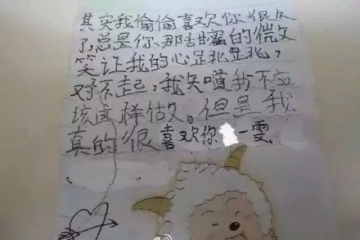 其实我偷偷喜欢你很久
了总是你那甜甜的微
笑让我的心怦怦,
对不起,我知道我不应
该这样做。但是我
真的很喜欢你一雯